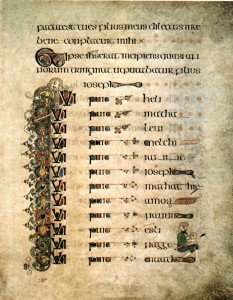 facta est tu es filius meus dilectus in te
bene conplacuit mihi
Et ipse ihs erat incipiens quasi an
norum triginta ut putabatur filius
ioseph
Qui fuit heli
Qui fuit matha
Qui fuit leui
Qui fuit melchi
Qui fuit
Qui fuit ioseph
Qui fuit mathathie
Qui fuit amos
Qui fuit nauum
Qui fuit esli
Qui fuit nagge
Qui fuit maath